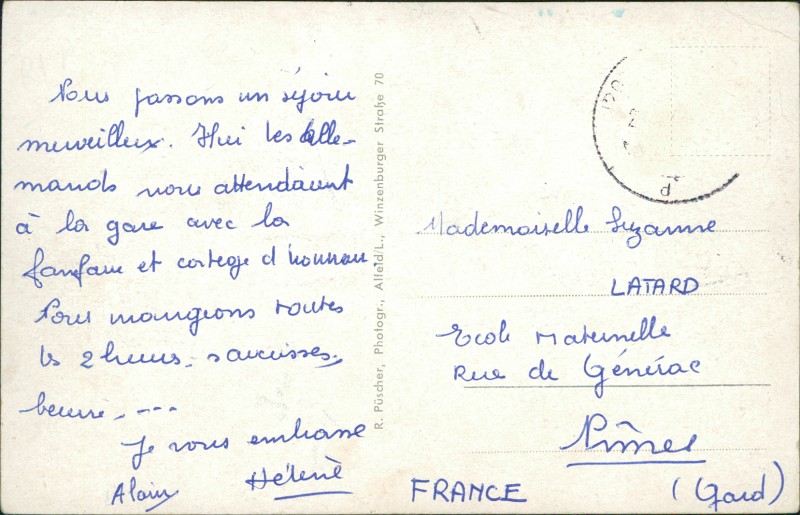 Nous passons un séjour
merveilleux. Hui les Alle-
mands nous attendaient
à la gare avec la
fanfare et cortege d'honneur
Nous mangeons toutes
les 2 heures, saucisses,
beurre, ---
Je vous embrasse
Alain Hélène
R. Püscher, Photogr., Alfeld/L., Winzenburger Straße 70
Mademoiselle Suzanne
LATARD
Ecole Maternelle
Rue de Générac
Nîmes
FRANCE (Gard)